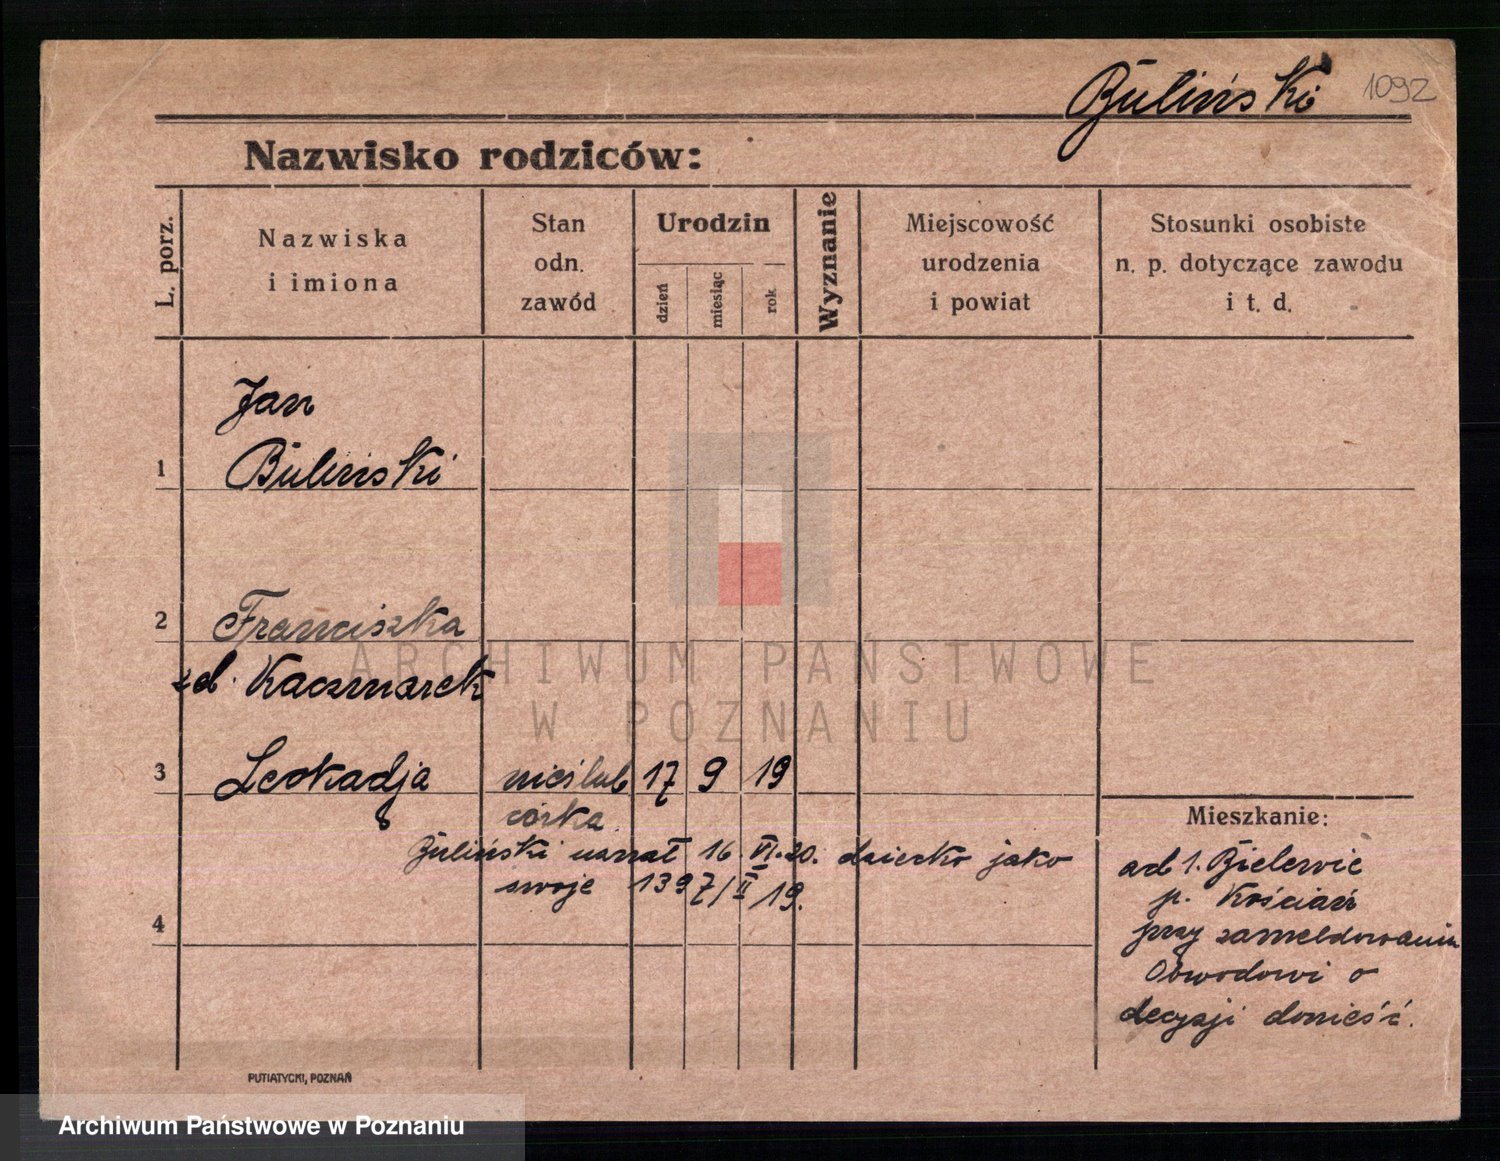 Buliński 1092
Nazwisko rodziców:
L. porz.
Nazwiska
i imiona
Stan
odn.
zawód
Urodzin
dzień
miesiąc
rok
Wyznanie
Miejscowość
urodzenia
i powiat
Stosunki osobiste
n. p. dotyczące zawodu
i t. d.
Jan
1 Buliński
2 Franciszka
zd. Kaczmarek
3 Leokadja nieślub 17 9 19
córka
Mieszkanie:
Buliński uznał 16 VI. 20. dziecko jako
swoje 1397/II 19.
4
od 1. Bielewie
p. Kościan
przy zameldowaniu
Obwodowi o
decyzji donieść.
PUTIATYCKI, POZNAŃ
ARCHIWUM PAŃSTWOWE
W POZNANIU
Archiwum Państwowe w Poznaniu